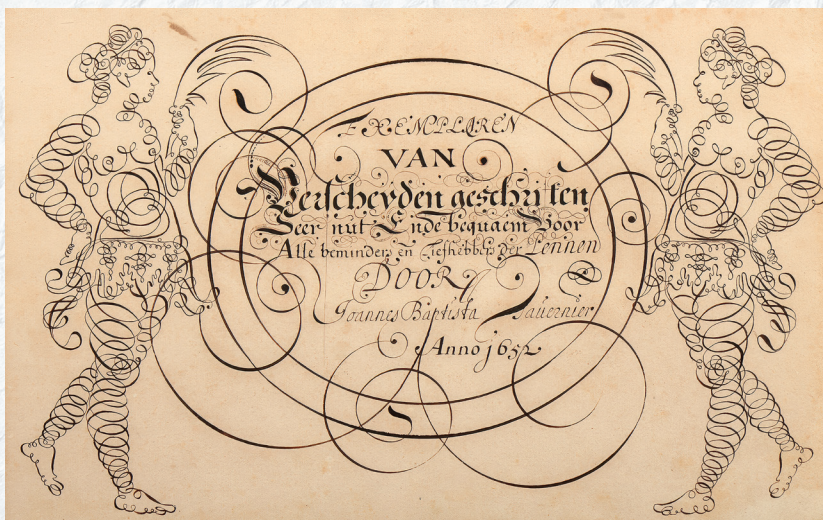 EXEMPLAREN
VAN
Verscheyden geschriften
Seer nut Ende bequaem Voor
Alle beminders en Liefhebbers der Pennen
DOOR
Joannes Baptista Tauernier
Anno 1652